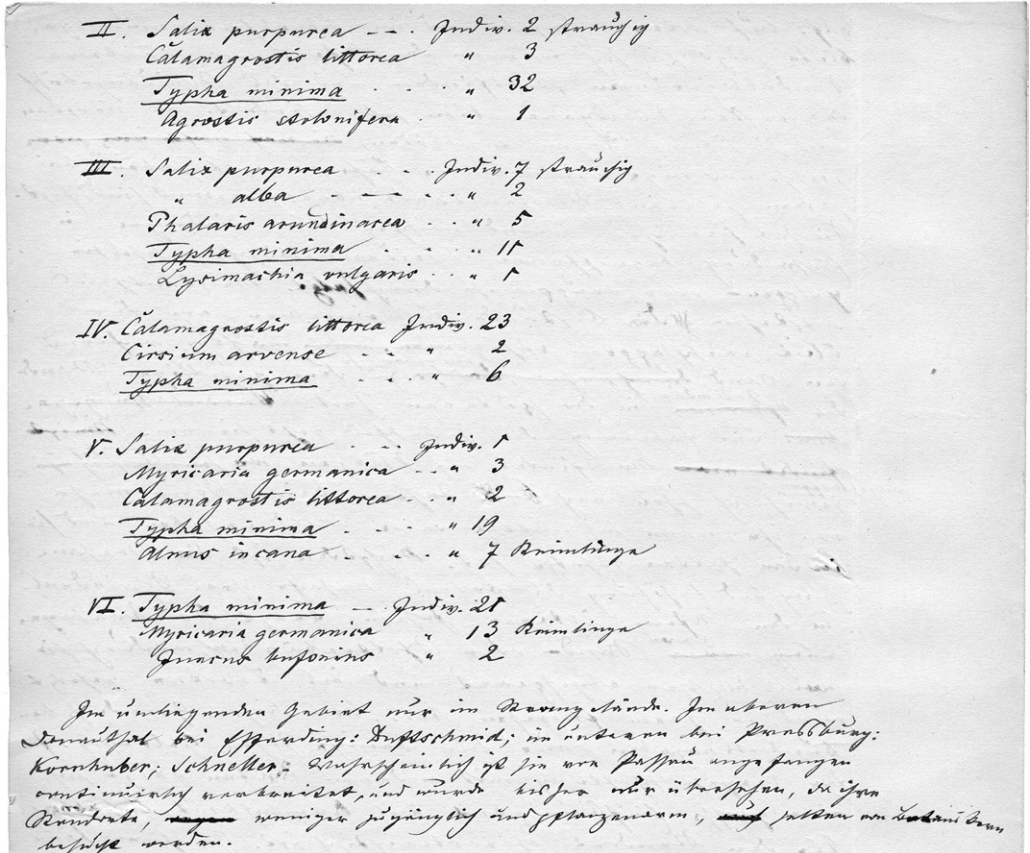 II. Salix purpurea - - . Indiv. 2 strauchig
Calamagrostis littorea " 3
Typha minima . . . " 32
Agrostis stolonifera . " 1
III. Salix purpurea . . Indiv. 7 strauchig
" alba - - - - " 2
Phalaris arundinacea . . " 5
Typha minima . . " 11
Lysimachia vulgaris . . " 1
IV. Calamagrostis littorea Indiv. 23
Cirsium arvense . . " 2
Typha minima . . " 6
V. Salix purpurea . . . Indiv. 1
Myricaria germanica . . " 3
Calamagrostis littorea . . " 2
Typha minima . . . " 19
Alnus incana . . . " 7 Keimlinge
VI. Typha minima - . Indiv. 21
Myricaria germanica " 13 Keimlinge
Juncus bufonius " 2
Im umliegenden Gebiet nur im Stromgelände. Im oberen
Donauthal bei Efferding: Duftschmid; im unteren bei Pressburg:
Kornhuber; Schneller. Wahrscheinlich ist sie von Passau angefangen
continuirlich verbreitet, und wurde bisher nur übersehen, da ihre
Standorte, weniger zugänglich und pflanzenarm, selten von Botanikern
besucht werden.